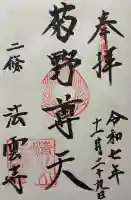 奉拝
令和七年
十一月二十九日
菊野尊天
二條
法雲寺